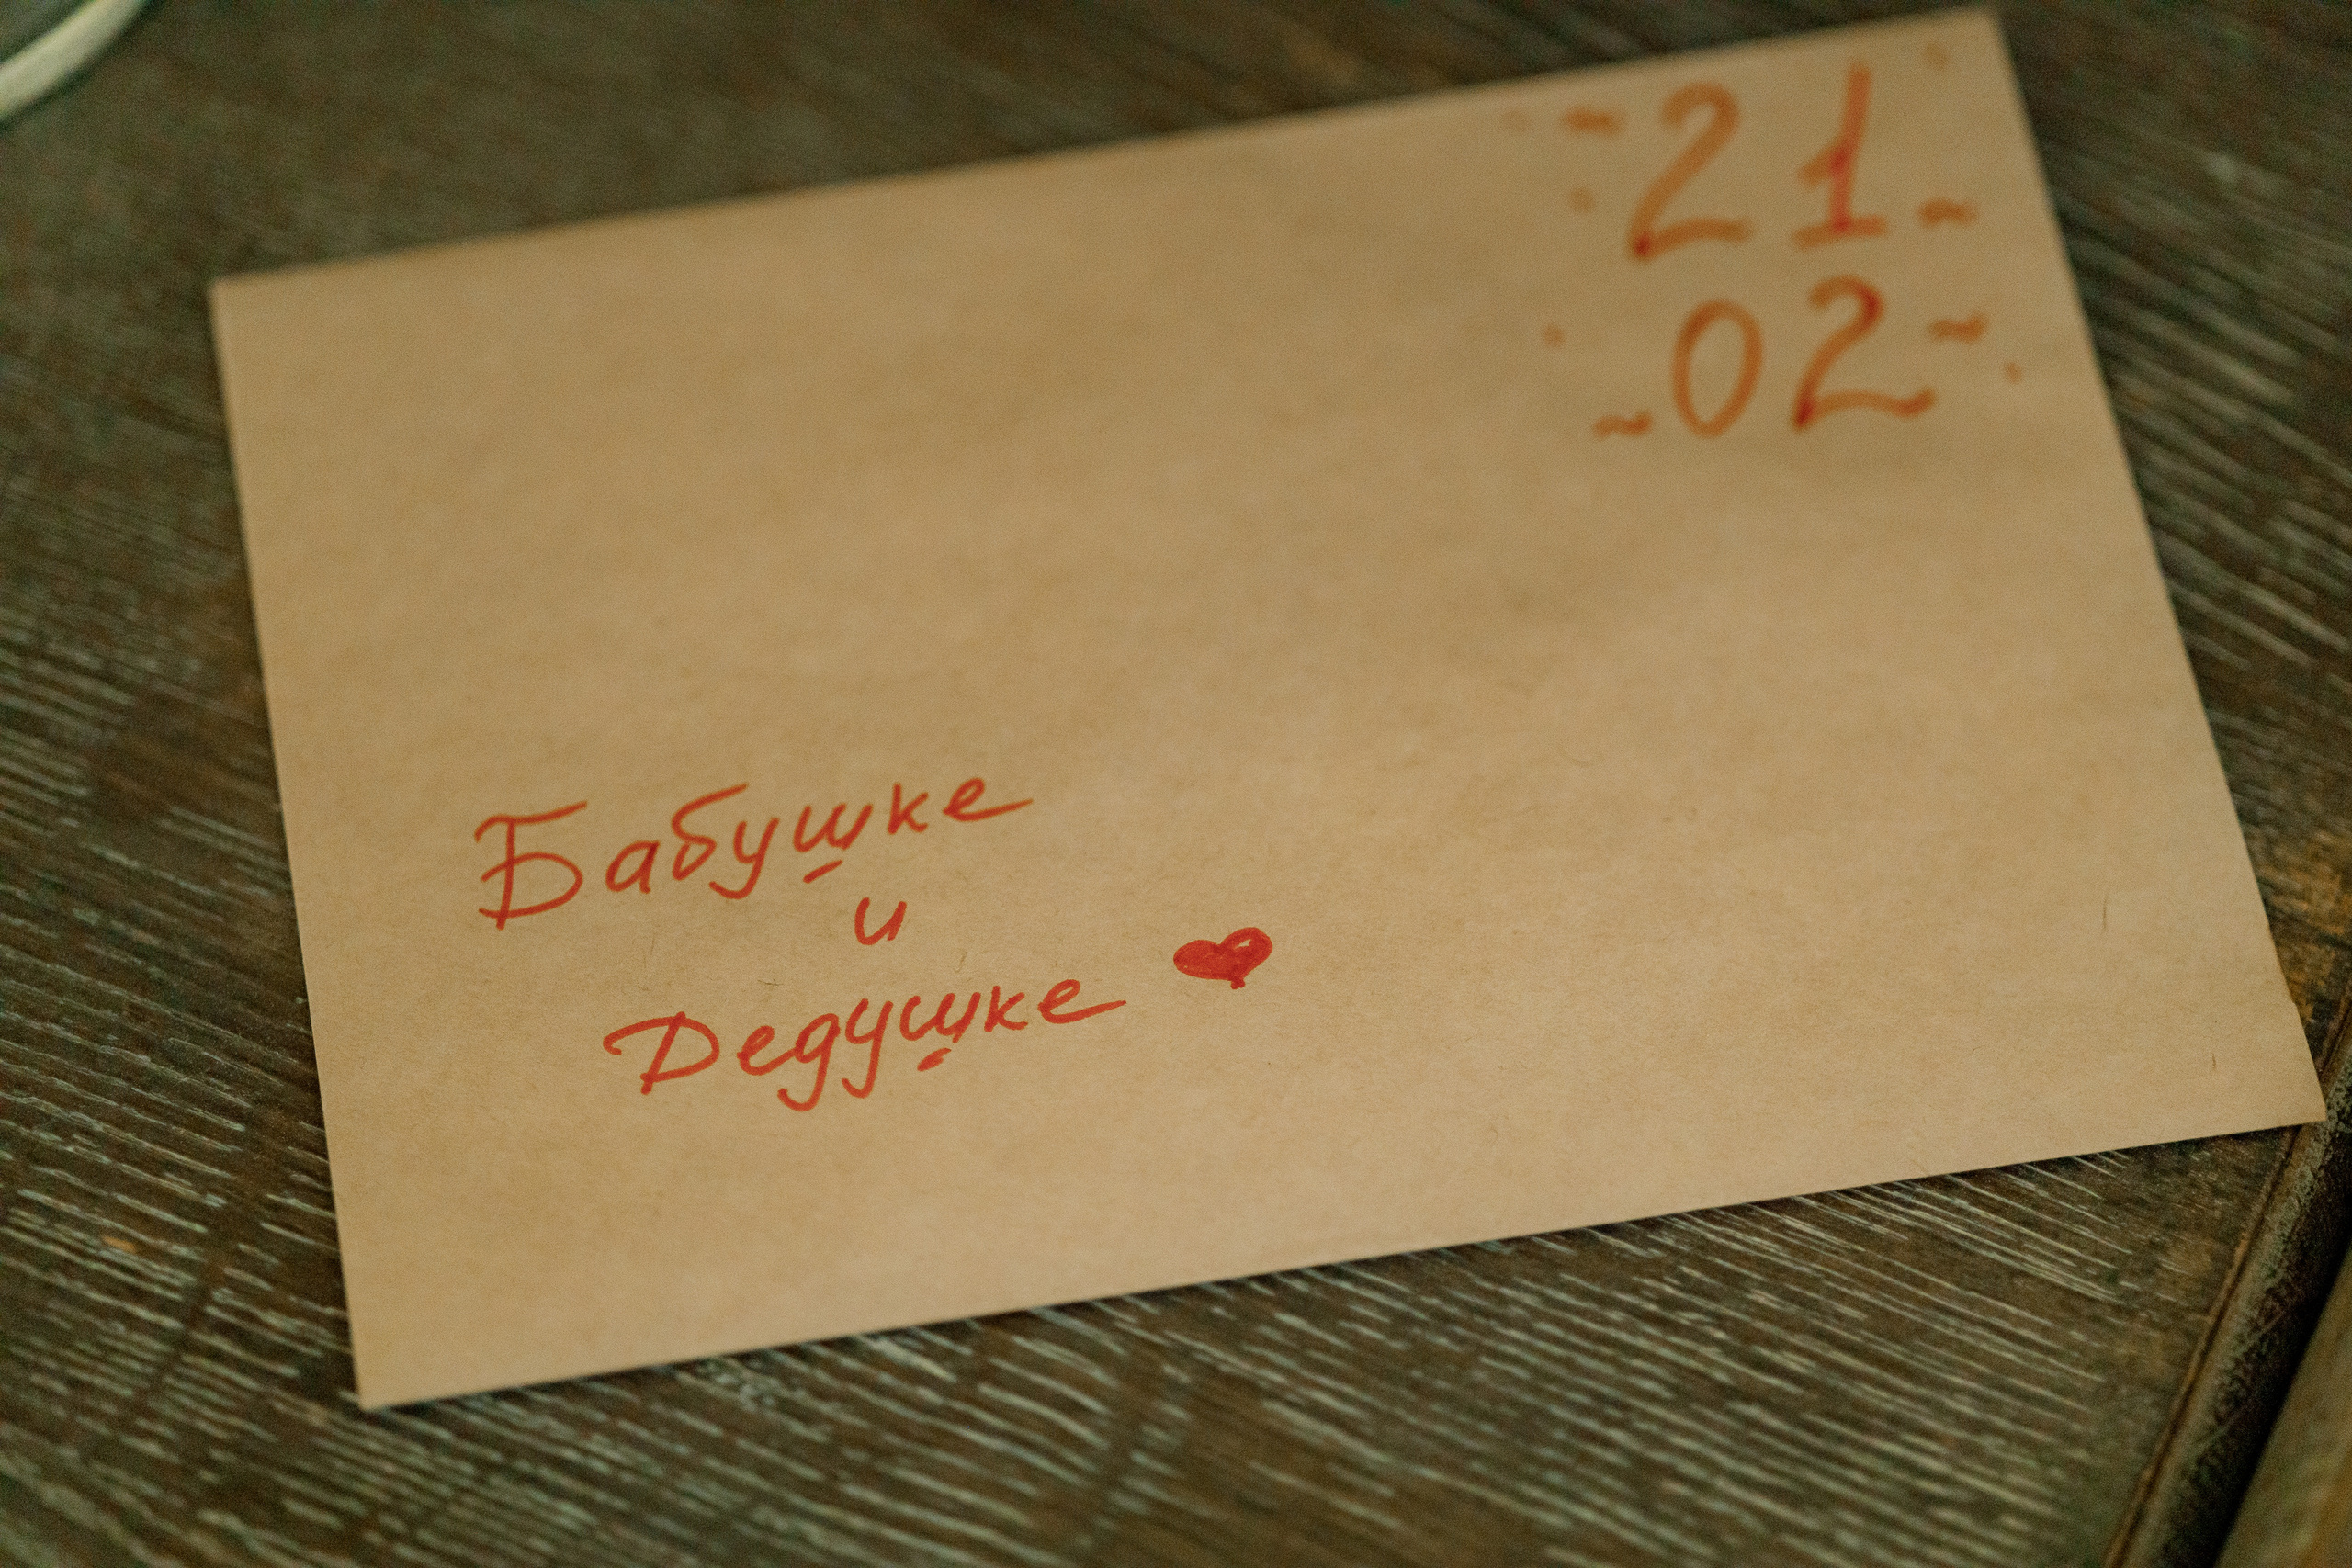 21
02
Бабушке
и
Дедушке ❤